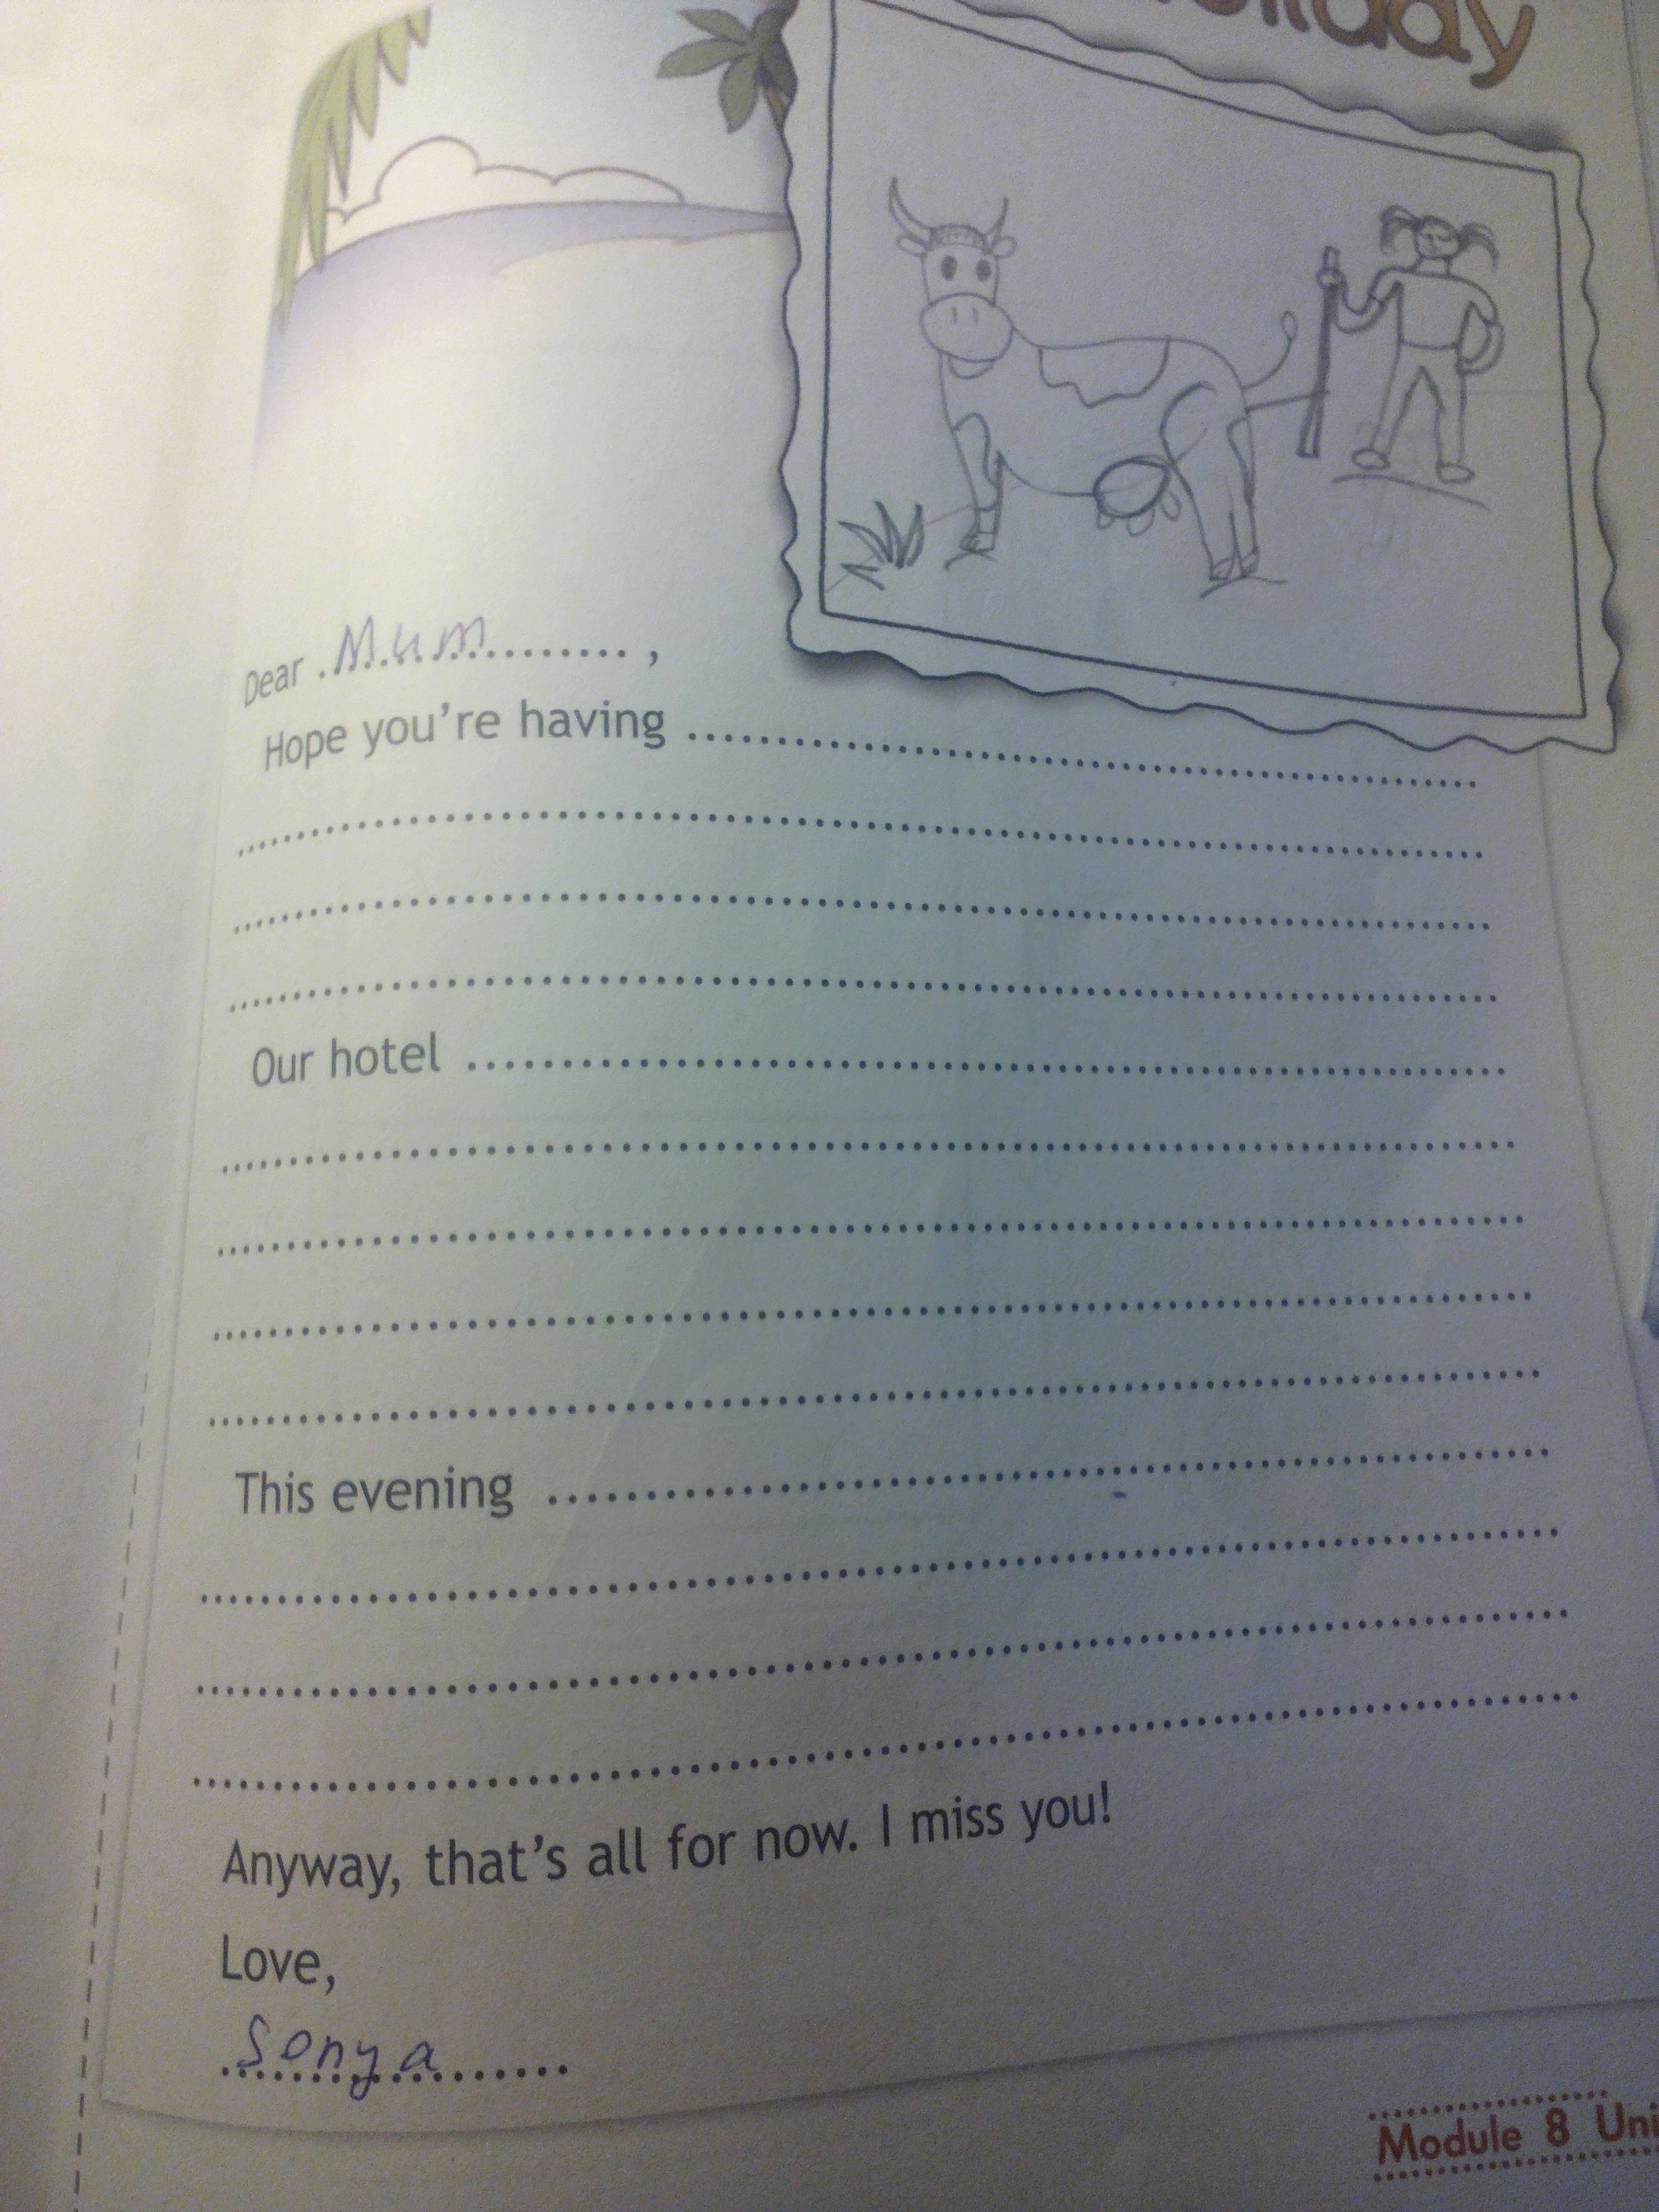 Dear Mum ,
Hope you're having
Our hotel
This evening
Anyway, that's all for now. I miss you!
Love,
Sonya
Module 8